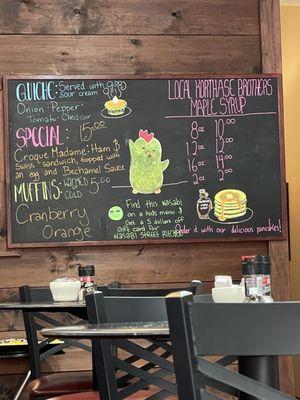 QUICHE: Served with
sour cream
Onion · Pepper ·
Tomato · Cheddar
SPECIAL: 15.00
Croque Madame: Ham &
Swiss sandwich, topped with
an egg and Bechamel Sauce
MUFFINS: 5.00
Cranberry
Orange
Find this Wasabi
on a kids menu &
Get a 5 dollars off
Gift card for
Wasabi Street
Local Korthase Brothers
Maple Syrup
8oz 10.00
12oz 12.00
16oz 14.00
Order it with our delicious pancakes!